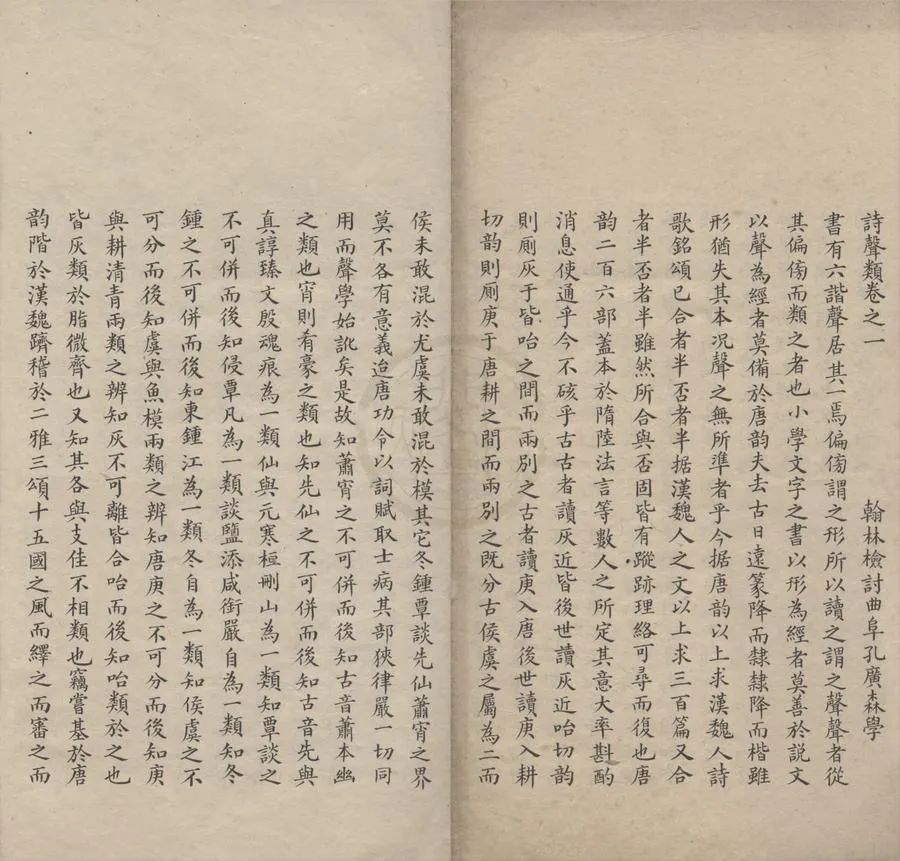 詩聲類卷之一
翰林檢討曲阜孔廣森學
書有六諧聲居其一焉偏傍謂之形所以讀之謂之聲聲者從
其偏傍而類之者也小學文字之書以形為經者莫善於說文
以聲為經者莫備於唐韵夫去古日遠篆降而隸隸降而楷雖
形猶失其本况聲之無所準者乎今据唐韵以上求漢魏人詩
歌銘頌已合者半否者半据漢魏人之文以上求三百篇又合
者半否者半雖然所合與否固皆有蹤跡理絡可尋而復也唐
韵二百六部蓋本於隋陸法言等數人之所定其意大率斟酌
消息使通乎今不硋乎古古者讀灰近皆後世讀灰近咍切韵
則厠灰于皆咍之間而兩別之古者讀庚入唐後世讀庚入耕
切韵則厠庚于唐耕之間而兩別之既分古侯虞之屬為二而
侯未敢混於尤虞未敢混於模其它冬鍾覃談先仙蕭宵之界
莫不各有意義迨唐功令以詞賦取士病其部狹律嚴一切同
用而聲學始訛矣是故知蕭宵之不可併而後知古音蕭本幽
之類也宵則有豪之類也知先仙之不可併而後知古音先與
真諄臻文殷魂痕為一類仙與元寒桓刪山為一類知覃談之
不可併而後知侵覃凡為一類談鹽添咸銜嚴自為一類知冬
鍾之不可併而後知東鍾江為一類冬自為一類知侯虞之不
可分而後知虞與魚模兩類之辨知唐庚之不可分而後知庚
與耕清青兩類之辨知灰不可離皆合咍而後知咍類於之也
皆灰類於脂微齊也又知其各與支佳不相類也竊嘗基於唐
韵階於漢魏躋稽於二雅三頌十五國之風而繹之而審之而